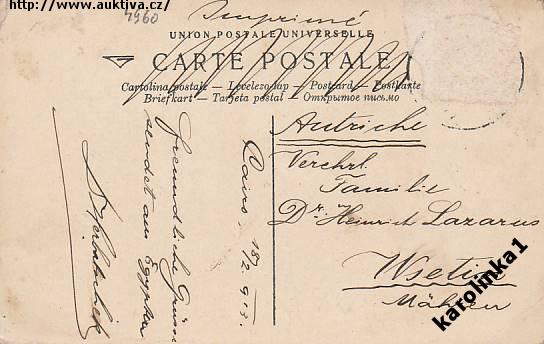 http://www.auktiva.cz/
4960
Imprimé
UNION POSTALE UNIVERSELLE
CARTE POSTALE
Cartolina postale – Levelezo-lap – Postcard – Postkarte
Briefkart – Tarjeta postal – Открытое письмо
Autriche
Verehrl.
Familie
Dr. Heinrich Lazarus
Wsetin
Mähren
Cairo 18/2 913.
Freundliche Grüsse
sendet aus Egypten
karolinka1